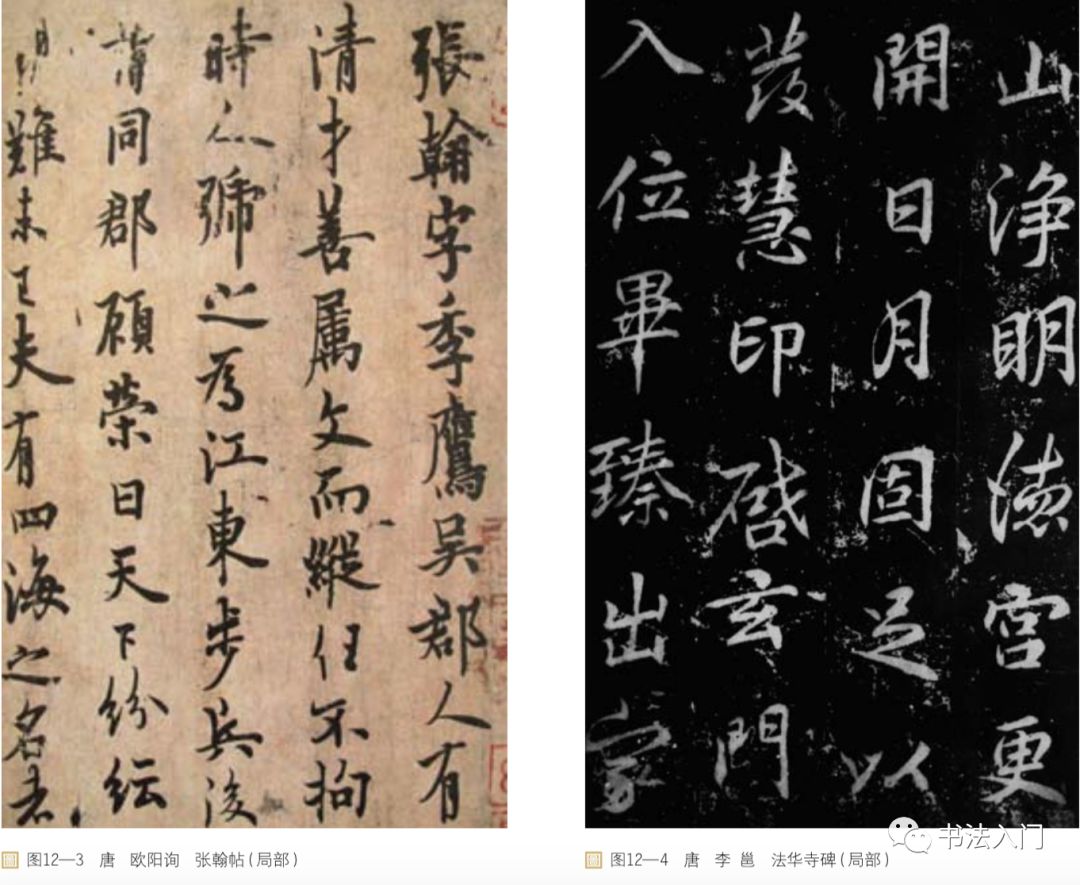 張翰字季鷹吳郡人有
清才善屬文而縱任不拘
時人號之為江東步兵後
謂同郡顧榮曰天下紛紜
難未已夫有四海之名者
山浄明德宮更
開日月固足以
發慧印啓玄門
入位畢臻出家
書法入门
圖 图12—3 唐 欧阳询 张翰帖(局部)
圖 图12—4 唐 李邕 法华寺碑(局部)